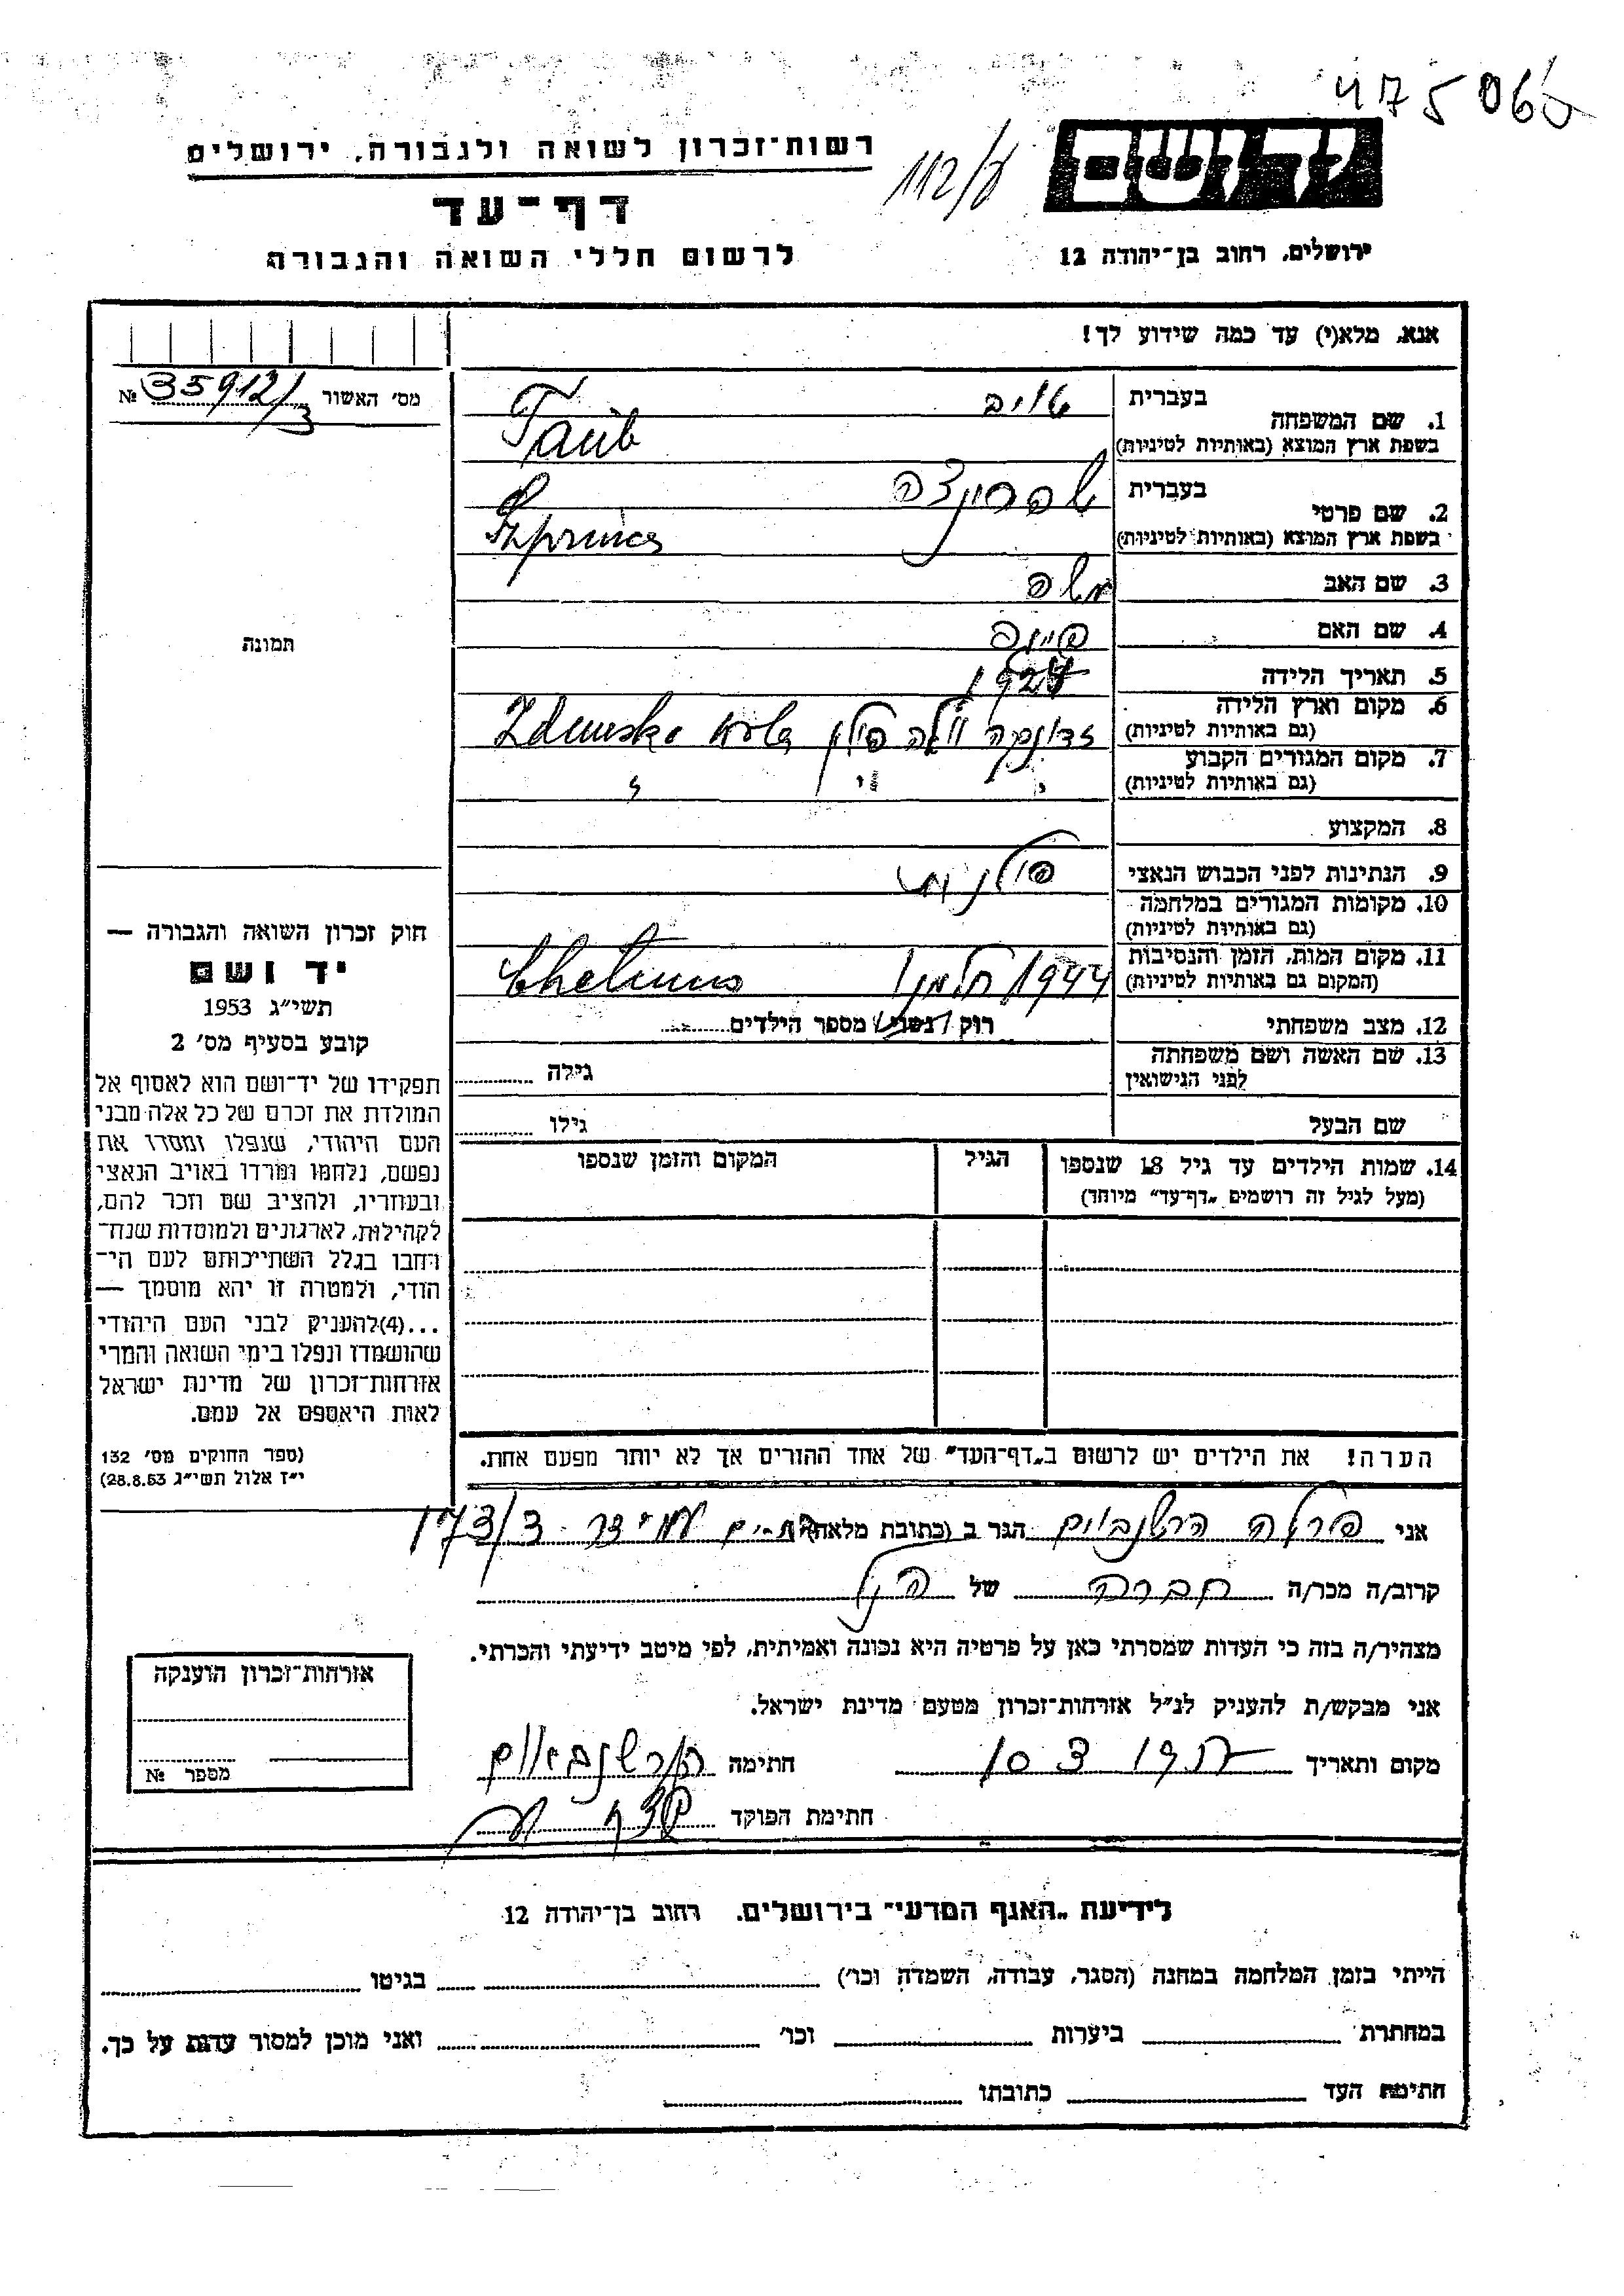 475065
רשות־זכרון לשואה ולגבורה, ירושלים
112/ע
ידושם
דף־עד
לרשום חללי השואה והגבורה
ירושלים, רחוב בן־יהודה 12
אנא, מלא(י) עד כמה שידוע לך!
מס' האשור 35912/3 №
תמונה
1. שם המשפחה בעברית טויב
בשפת ארץ המוצא (באותיות לטיניות) Taub
2. שם פרטי בעברית שפרינצה
בשפת ארץ המוצא (באותיות לטיניות) Szprinca
3. שם האב משה
4. שם האם
5. תאריך הלידה
6. מקום וארץ הלידה
(גם באותיות לטיניות) זדונסקה וולה פולין Zdunska
7. מקום המגורים הקבוע
(גם באותיות לטיניות) " " "
8. המקצוע
9. הנתינות לפני הכבוש הנאצי פולנית
10. מקומות המגורים במלחמה
(גם באותיות לטיניות)
11. מקום המות, הזמן והנסיבות
(המקום גם באותיות לטיניות) 1944 חלמנו Chelmno
12. מצב משפחתי רוק/נשוי/ מספר הילדים
13. שם האשה ושם משפחתה
לפני הנישואין גילה
שם הבעל גילו
14. שמות הילדים עד גיל 18 שנספו הגיל המקום והזמן שנספו
(מעל לגיל זה רושמים „דף־עד" מיוחד)
הערה! את הילדים יש לרשום ב„דף־העד" של אחד ההורים אך לא יותר מפעם אחת.
חוק זכרון השואה והגבורה —
יד ושם
תשי"ג 1953
קובע בסעיף מס' 2
תפקידו של יד־ושם הוא לאסוף אל
המולדת את זכרם של כל אלה מבני
העם היהודי, שנפלו ומסרו את
נפשם, נלחמו ומרדו באויב הנאצי
ובעוזריו, ולהציב שם וזכר להם,
לקהילות, לארגונים ולמוסדות שנח־
רחבו בגלל השתייכותם לעם הי־
הודי, ולמטרה זו יהא מוסמך —
...(4)להעניק לבני העם היהודי
שהושמדו ונפלו בימי השואה והמרי
אזרחות־זכרון של מדינת ישראל
לאות היאספם אל עמם.
(ספר החוקים מס' 132
י"ז אלול תשי"ג 28.8.53)
אני פרלה הרשנבוים הגר ב (כתובת מלאה) בת-ים עמידר 173/3
קרוב/ה מכר/ה חברה של הנ"ל
מצהיר/ה בזה כי העדות שמסרתי כאן על פרטיה היא נכונה ואמיתית, לפי מיטב ידיעתי והכרתי.
אני מבקש/ת להעניק לנ"ל אזרחות־זכרון מטעם מדינת ישראל.
מקום ותאריך חתימה הרשנבאום
חתימת הפוקד
אזרחות־זכרון הוענקה
מספר №
לידיעת „האגף המדעי" בירושלים. רחוב בן־יהודה 12
הייתי בזמן המלחמה במחנה (הסגר, עבודה, השמדה וכו') בגיטו
במחתרת ביערות וכו' ואני מוכן למסור עדות על כך.
חתימת העד כתובתו